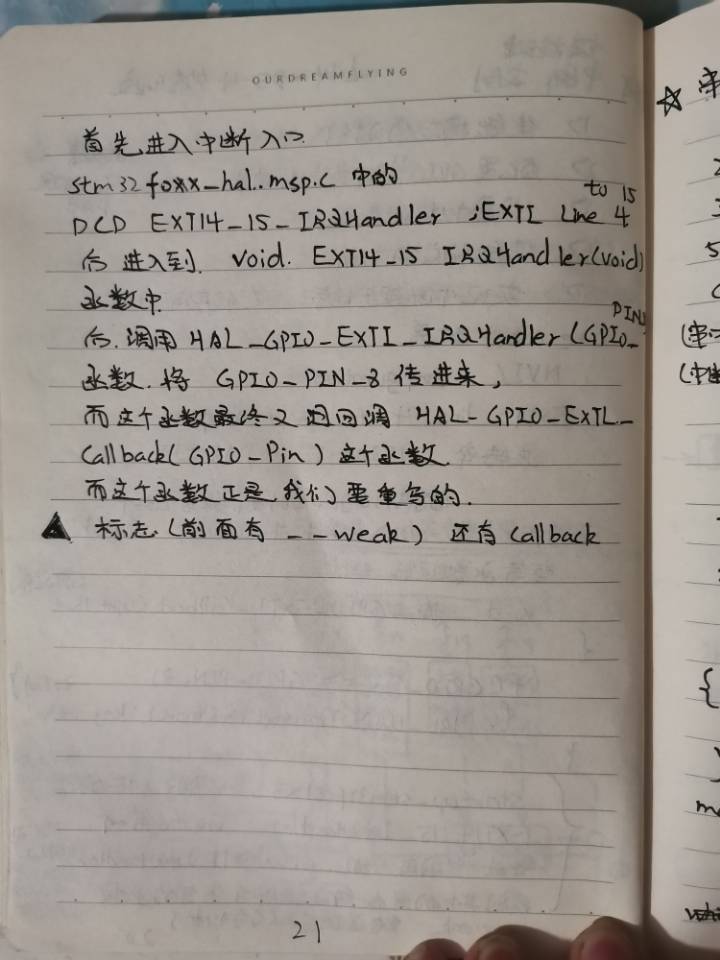 OURDREAMFLYING
首先进入中断入口
stm32f0xx_hal.msp.c 中的
DCD EXTI4_15_IRQHandler ;EXTI Line 4 to 15
后进入到. void. EXTI4_15 IRQHandler(void)
函数中.
后.调用 HAL_GPIO_EXTI_IRQHandler(GPIO_PIN
函数.将 GPIO_PIN_8 传进来,
而这个函数最终又回调 HAL_GPIO_EXTI_
Callback(GPIO_Pin)这个函数.
而这个函数正是我们要重写的.
▲ 标志(前面有 __weak) 还有 Callback
21